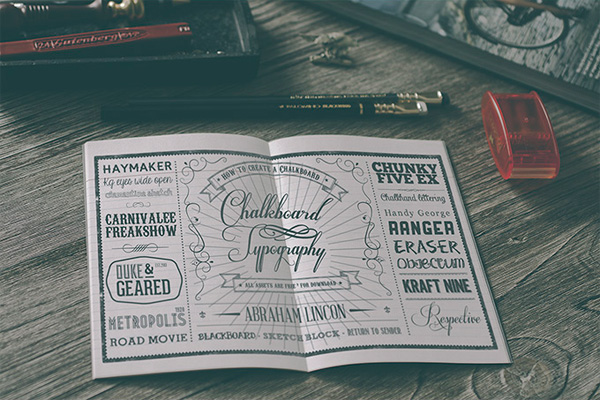 HAYMAKER
Kg eyes wide open
clementine sketch
CARNIVALEE
FREAKSHOW
DUKE &
GEARED
METROPOLIS
ROAD MOVIE
HOW-TO CREATE A CHALKBOARD
Chalkboard
Typography
ALL ASSETS ARE FREE* FOR DOWNLOAD
ABRAHAM LINCON
BLACKBOARD - SKETCH BLOCK - RETURN TO SENDER
CHUNKY
FIVE EX
Chalkhand lettering
Handy George
RANGER
ERASER
Obseccum
KRAFT NINE
Respective